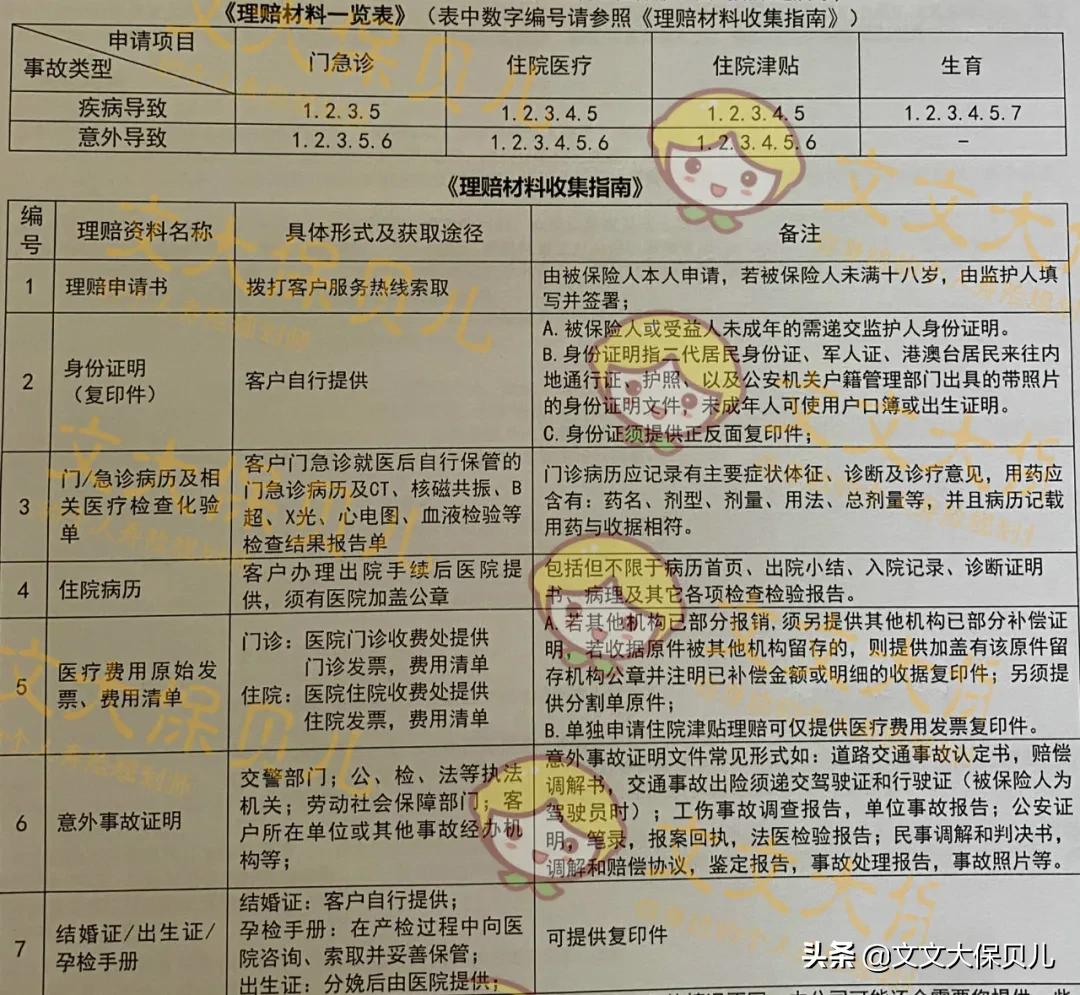 《理赔材料一览表》（表中数字编号请参照《理赔材料收集指南》）
申请项目
事故类型
门急诊
住院医疗
住院津贴
生育
疾病导致
1.2.3.5
1.2.3.4.5
1.2.3.4.5
1.2.3.4.5.7
意外导致
1.2.3.5.6
1.2.3.4.5.6
1.2.3.4.5.6
–
《理赔材料收集指南》
编
号
理赔资料名称
具体形式及获取途径
备注
1
理赔申请书
拨打客户服务热线索取
由被保险人本人申请，若被保险人未满十八岁，由监护人填
写并签署；
2
身份证明
（复印件）
客户自行提供
A.被保险人或受益人未成年的需递交监护人身份证明。
B.身份证明指二代居民身份证、军人证、港澳台居民来往内
地通行证、护照、以及公安机关户籍管理部门出具的带照片
的身份证明文件，未成年人可使用户口簿或出生证明。
C.身份证须提供正反面复印件；
3
门/急诊病历及相
关医疗检查化验
单
客户门急诊就医后自行保管的
门急诊病历及CT、核磁共振、B
超、X光、心电图、血液检验等
检查结果报告单
门诊病历应记录有主要症状体征、诊断及诊疗意见，用药应
含有：药名、剂型、剂量、用法、总剂量等，并且病历记载
用药与收据相符。
4
住院病历
客户办理出院手续后医院提
供，须有医院加盖公章
包括但不限于病历首页、出院小结、入院记录、诊断证明
书、病理及其它各项检查检验报告。
5
医疗费用原始发
票、费用清单
门诊：医院门诊收费处提供
门诊发票，费用清单
住院：医院住院收费处提供
住院发票，费用清单
A.若其他机构已部分报销,须另提供其他机构已部分补偿证
明，若收据原件被其他机构留存的，则提供加盖有该原件留
存机构公章并注明已补偿金额或明细的收据复印件；另须提
供分割单原件；
B.单独申请住院津贴理赔可仅提供医疗费用发票复印件。
6
意外事故证明
交警部门；公、检、法等执法
机关；劳动社会保障部门；客
户所在单位或其他事故经办机
构等；
意外事故证明文件常见形式如：道路交通事故认定书，赔偿
调解书，交通事故出险须递交驾驶证和行驶证（被保险人为
驾驶员时）；工伤事故调查报告，单位事故报告；公安证
明，笔录，报案回执，法医检验报告；民事调解和判决书，
调解和赔偿协议，鉴定报告，事故处理报告，事故照片等。
7
结婚证/出生证/
孕检手册
结婚证：客户自行提供；
孕检手册：在产检过程中向医
院咨询、索取并妥善保管；
出生证：分娩后由医院提供；
可提供复印件
头条 @文文大保贝儿